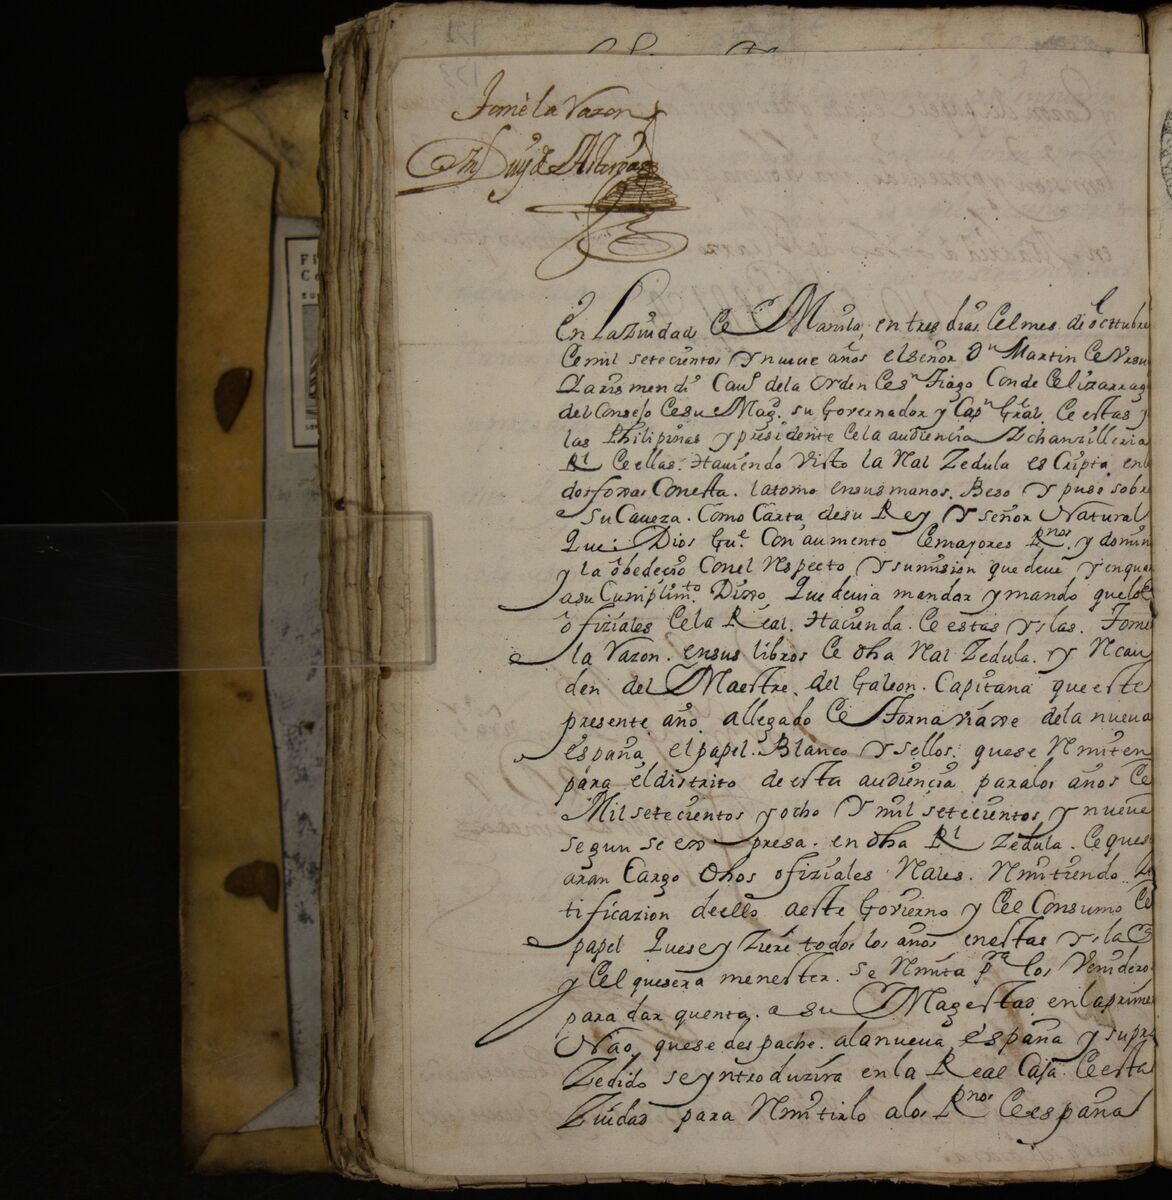 Tome la razon
En la Ziudad de Manila, en tres dias del mes de octtubre
de mil setecientos y nueve años el señor Dn Martin de Ursu
Y Arismendi Cavo dela orden de sn Tiago Conde de Lizarrag
del Consejo de su Magd. su Governador y Capn Gral. de estas y
las Philipinas y presidente de la audiencia Y chanzilleria
Rl de ellas. Haviendo visto la Ral Zedula escripta en la
dos foxas Con esta. la tomo en sus manos. Beso Y puso sobre
su Caveza. Como Carta de su Rey Y señor Natural
Que Dios Gue. Con aumento de mayores Rnos. y domin
y la obedecio Con el Respecto Y sumision que deve y en qua
a su Cumplimto. Dixo Que devia mandar y mando que los
ofiziales de la Real. Hazienda. de estas Yslas. Tome
la razon. en sus libros de dha Ral Zedula. y Recau
den del Maestre. del Galeon. Capitana que este
presente año. a llegado de Tornaviaxe de la nueva
españa el papel. Blanco Y sellos. que se Remiten
para el distrito de esta audiencia para los años de
Mil setecientos y ocho Y mil setecientos y nueve
segun se expresa. en dha Rl Zedula. de que se
aran Cargo dhos ofiziales Rales. Remitiendo
tificazion de ello a este Govierno y del Consumo de
papel Que se yziere todos los años en estas Yslas
y del que sera menester. se Remita pra los Venidero
para dar quenta. a su Magestad en la prime
Nao, que se despache. a la nueva españa y su pro
Zedido se yntroduzira en la Real Caja de esta
Ziudad para Remitirlo a los Rnos de españa